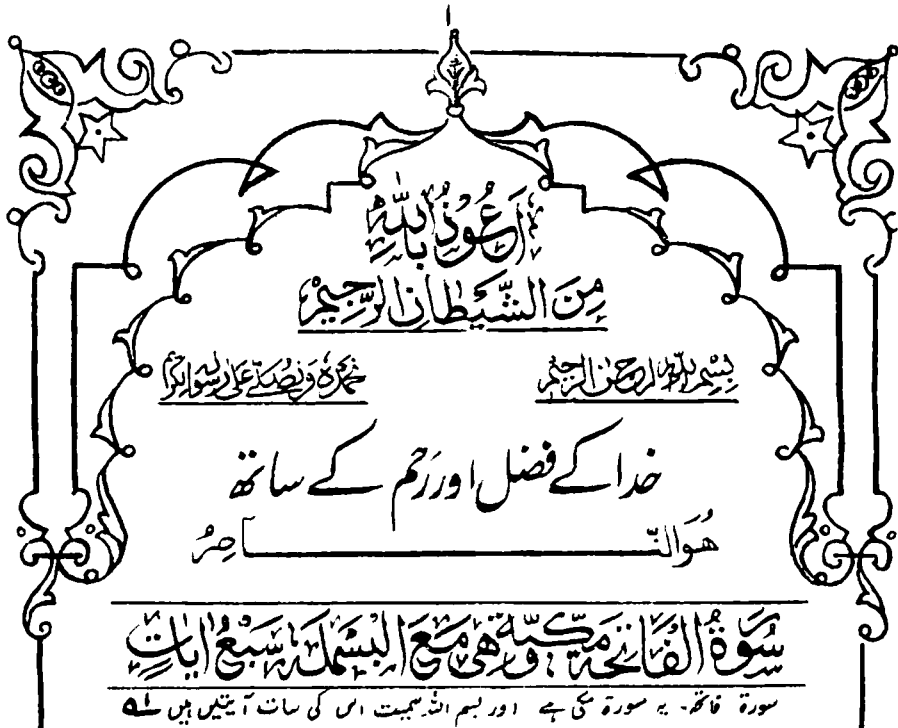 ۱
اَعُوْذُ بِاللّٰهِ
مِنَ الشَّيْطَانِ الرَّجِيْمِ
بِسْمِ اللّٰهِ الرَّحْمٰنِ الرَّحِيْمِ نَحْمَدُهٗ وَنُصَلِّيْ عَلٰى رَسُوْلِهِ الْكَرِيْمِ
خدا کے فضل اور رَحم کے ساتھ
هُوَ النَّــــــاصِرُ
سُوْرَةُ الْفَاتِحَةِ مَكِّيَّةٌ وَّهِيَ مَعَ الْبَسْمَلَةِ سَبْعُ اٰيَاتٍ
سورۃ فاتحہ۔ یہ سورۃ مکی ہے اور بسم اللہ سمیت اس کی سات آیتیں ہیں